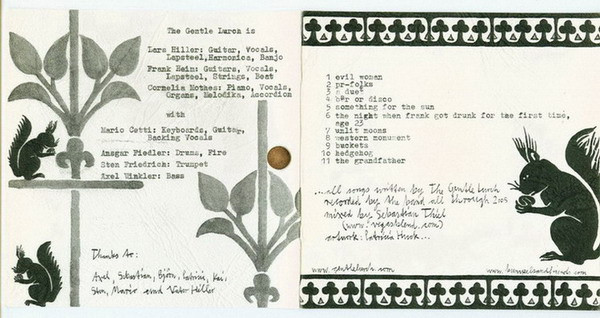 The Gentle Lurch is
Lars Hiller: Guitar, Vocals,
Lapsteel,Harmonica, Banjo
Frank Heim: Guitars, Vocals,
Lapsteel, Strings, Beat
Cornelia Mothes: Piano, Vocals,
Organs, Melodika, Accordion
with
Mario Cetti: Keyboards, Guitar,
Backing Vocals
Ansgar Fiedler: Drums, Fire
Sten Friedrich: Trumpet
Axel Winkler: Bass
Thanks to:
Axel, Sebastian, Björn, Patricia, Kai,
Sten, Mario and Viktor Hiller
1 evil woman
2 pr-folks
3 a duet
4 bar or disco
5 something for the sun
6 the night when frank got drunk for the first time,
age 23
7 unlit moons
8 western monument
9 buckets
10 hedgehog
11 the grandfather
...all songs written by The Gentle Lurch
recorded by the band all through 2005
mixed by Sebastian Thiel
artwork: Patricia
www.gentlelurch.com